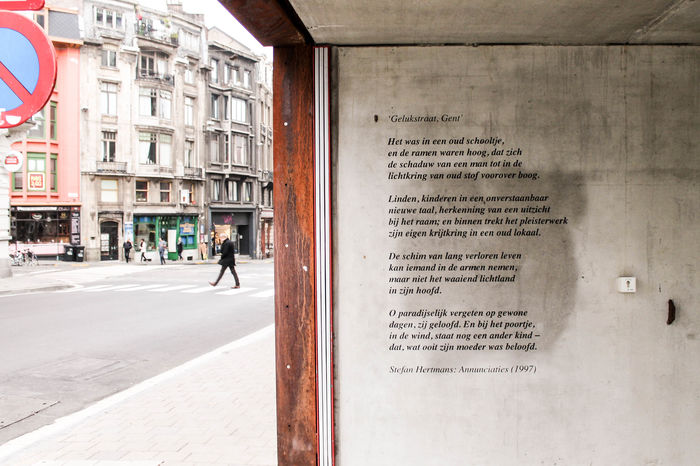 'Gelukstraat, Gent'
Het was in een oud schooltje,
en de ramen waren hoog, dat zich
de schaduw van een man tot in de
lichtkring van oud stof voorover boog.
Linden, kinderen in een onverstaanbaar
nieuwe taal, herkenning van een uitzicht
bij het raam; en binnen trekt het pleisterwerk
zijn eigen krijtkring in een oud lokaal.
De schim van lang verloren leven
kan iemand in de armen nemen,
maar niet het waaiend lichtland
in zijn hoofd.
O paradijselijk vergeten op gewone
dagen, zij geloofd. En bij het poortje,
in de wind, staat nog een ander kind –
dat, wat ooit zijn moeder was beloofd.
Stefan Hertmans: Annunciaties (1997)